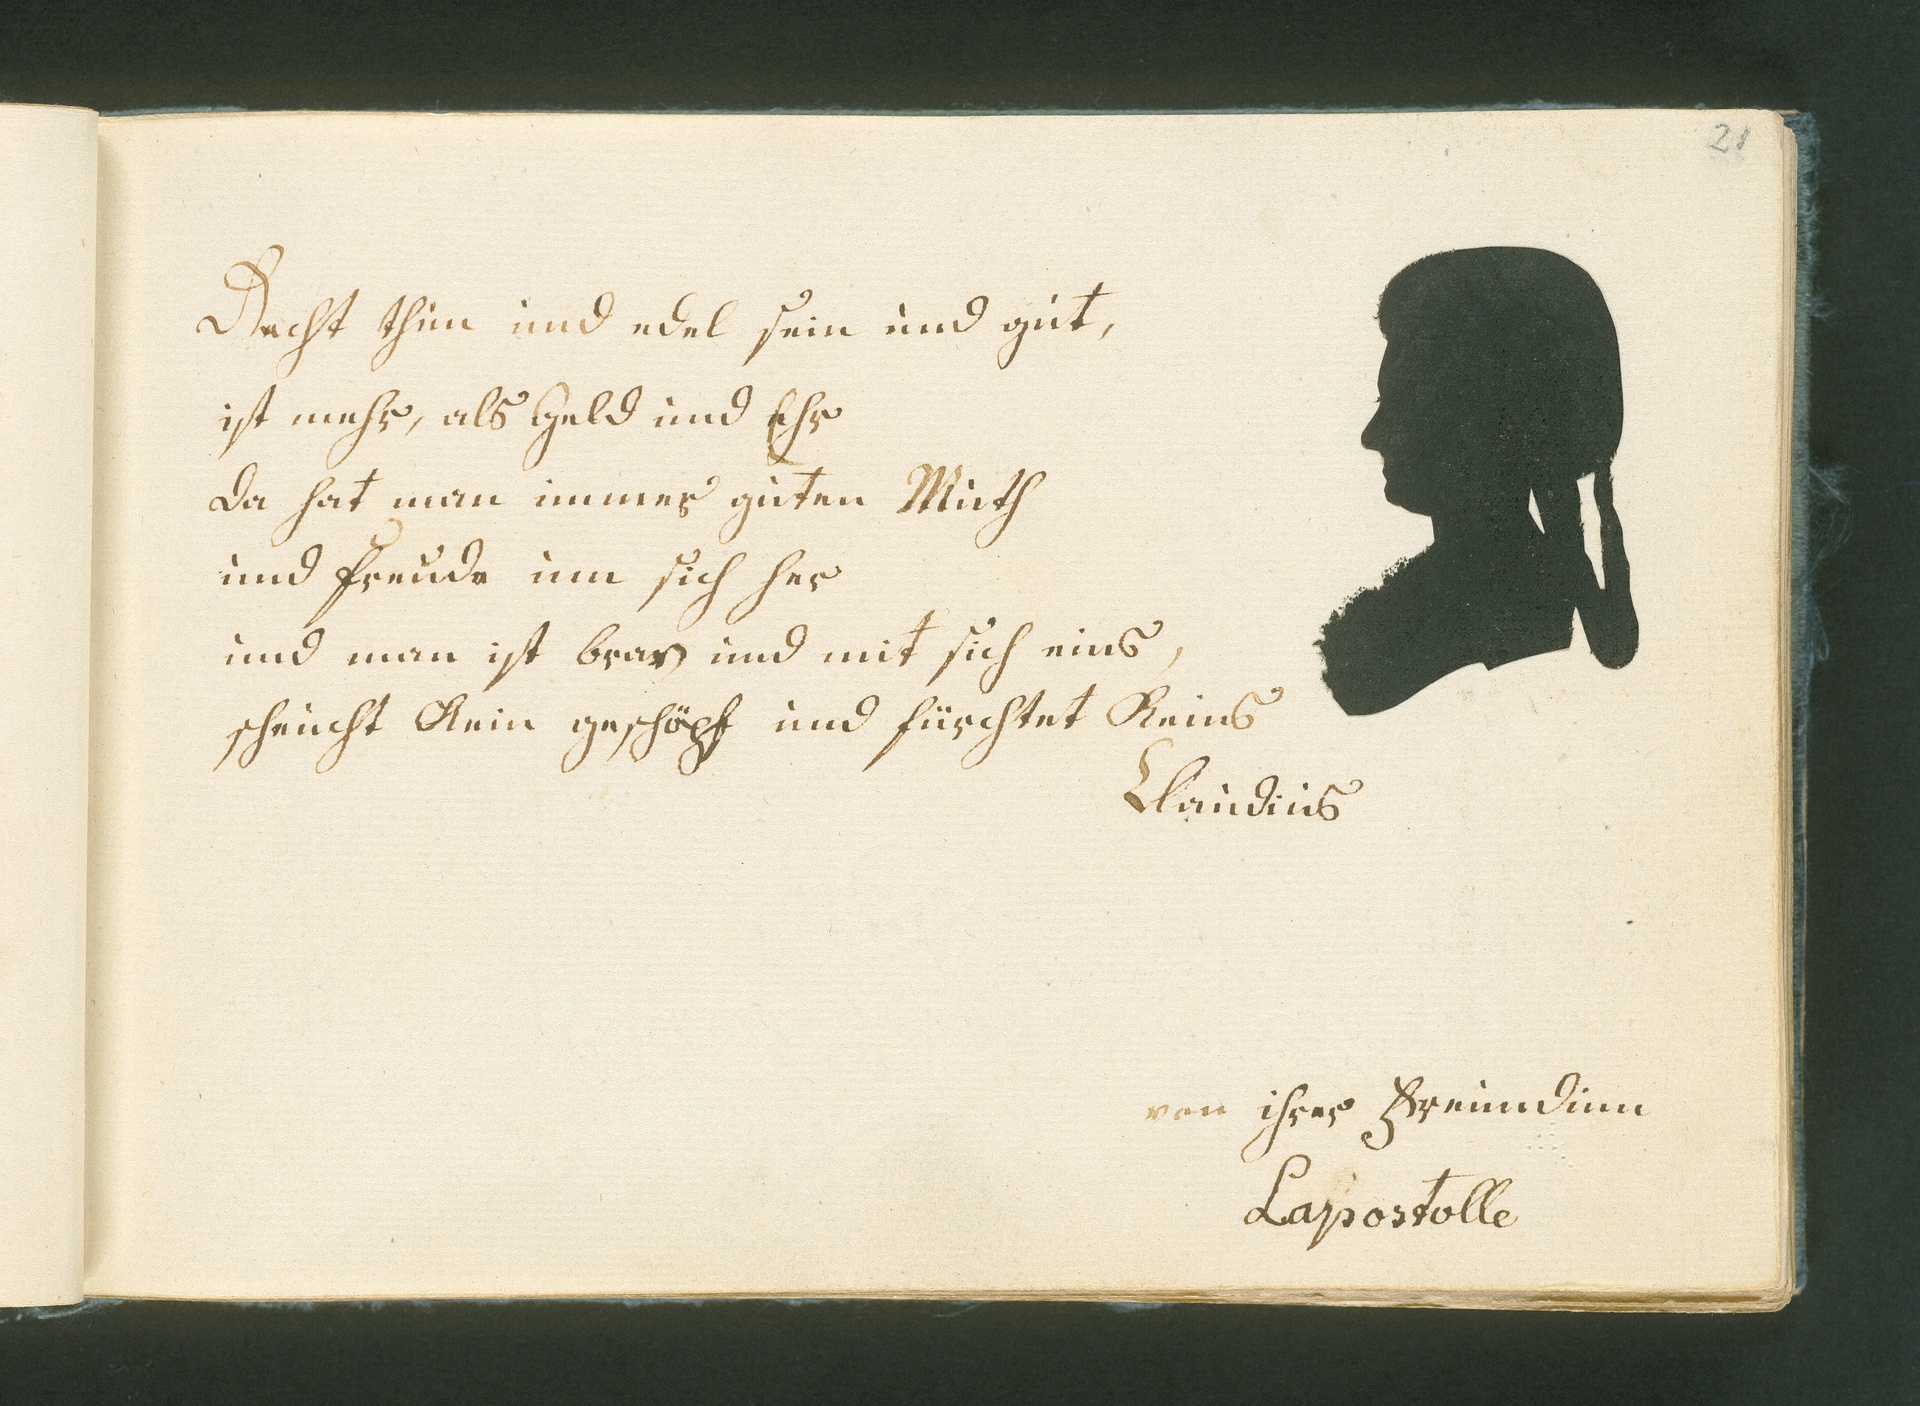 21
Recht thun und edel sein und gut,
ist mehr, als Geld und Ehr
da hat man immer guten Muth
und freude um sich her
und man ist brav und mit sich eins,
scheucht Kein geschöpf und fürchtet Keins
Claudius
von ihrer Freundinn
Lapostolle